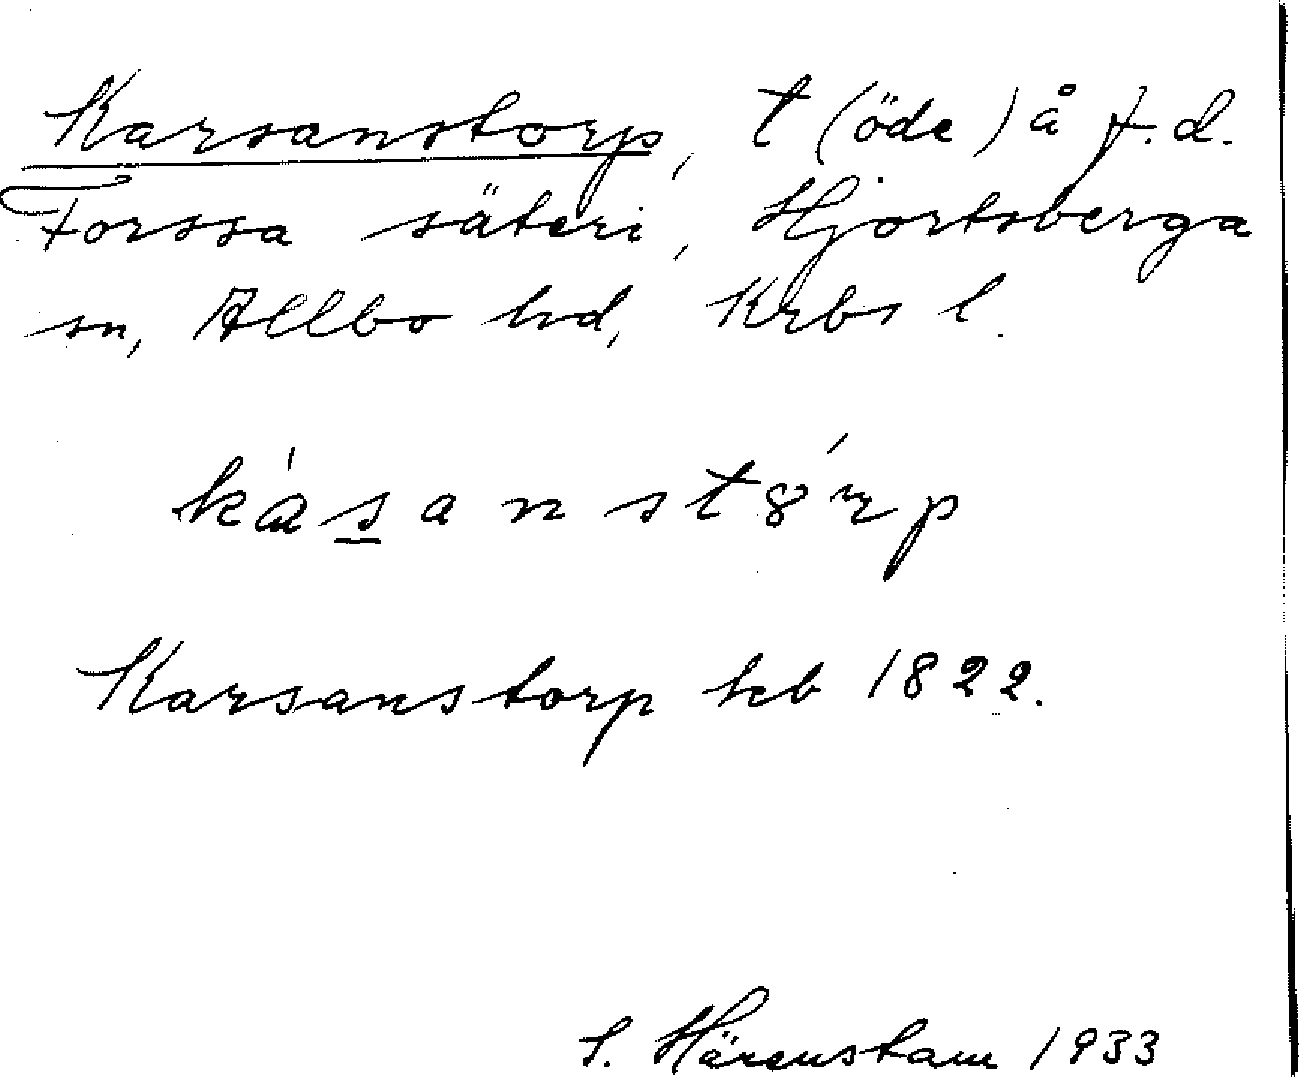 Karsanstorp, t (öde) å f.d.
Forssa säteri, Hjortsberga
sn, Allbo hd, Krbs l.
kásanstórp
Karsanstorp hb 1822.
S. Härenstam 1933